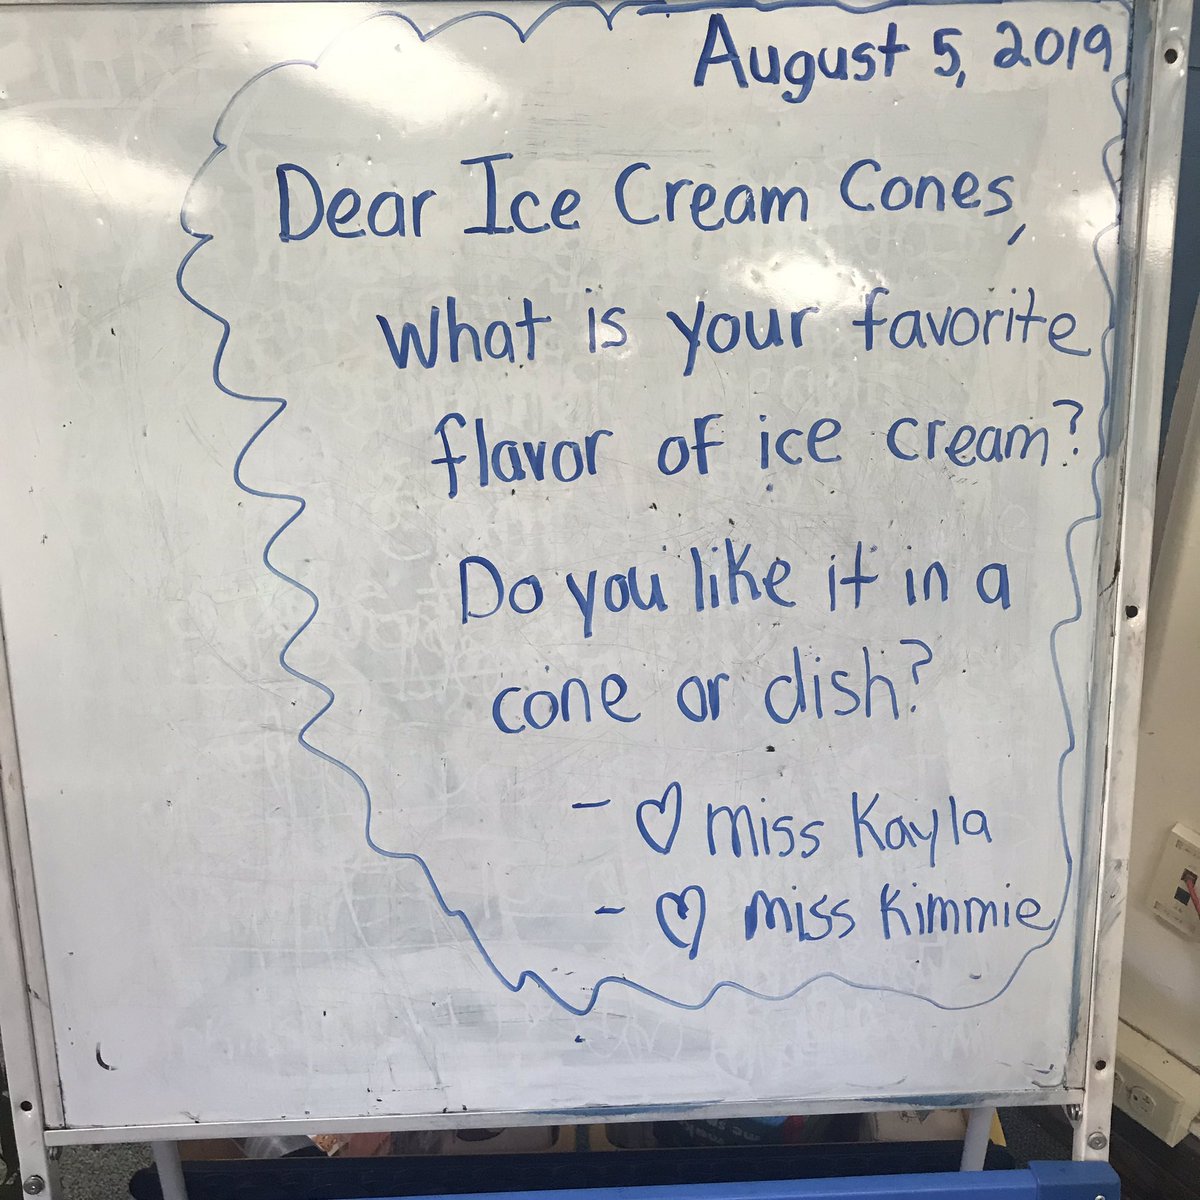 August 5, 2019
Dear Ice Cream Cones,
What is your favorite
flavor of ice cream?
Do you like it in a
cone or dish?
- ♡ Miss Kayla
- ♡ Miss Kimmie